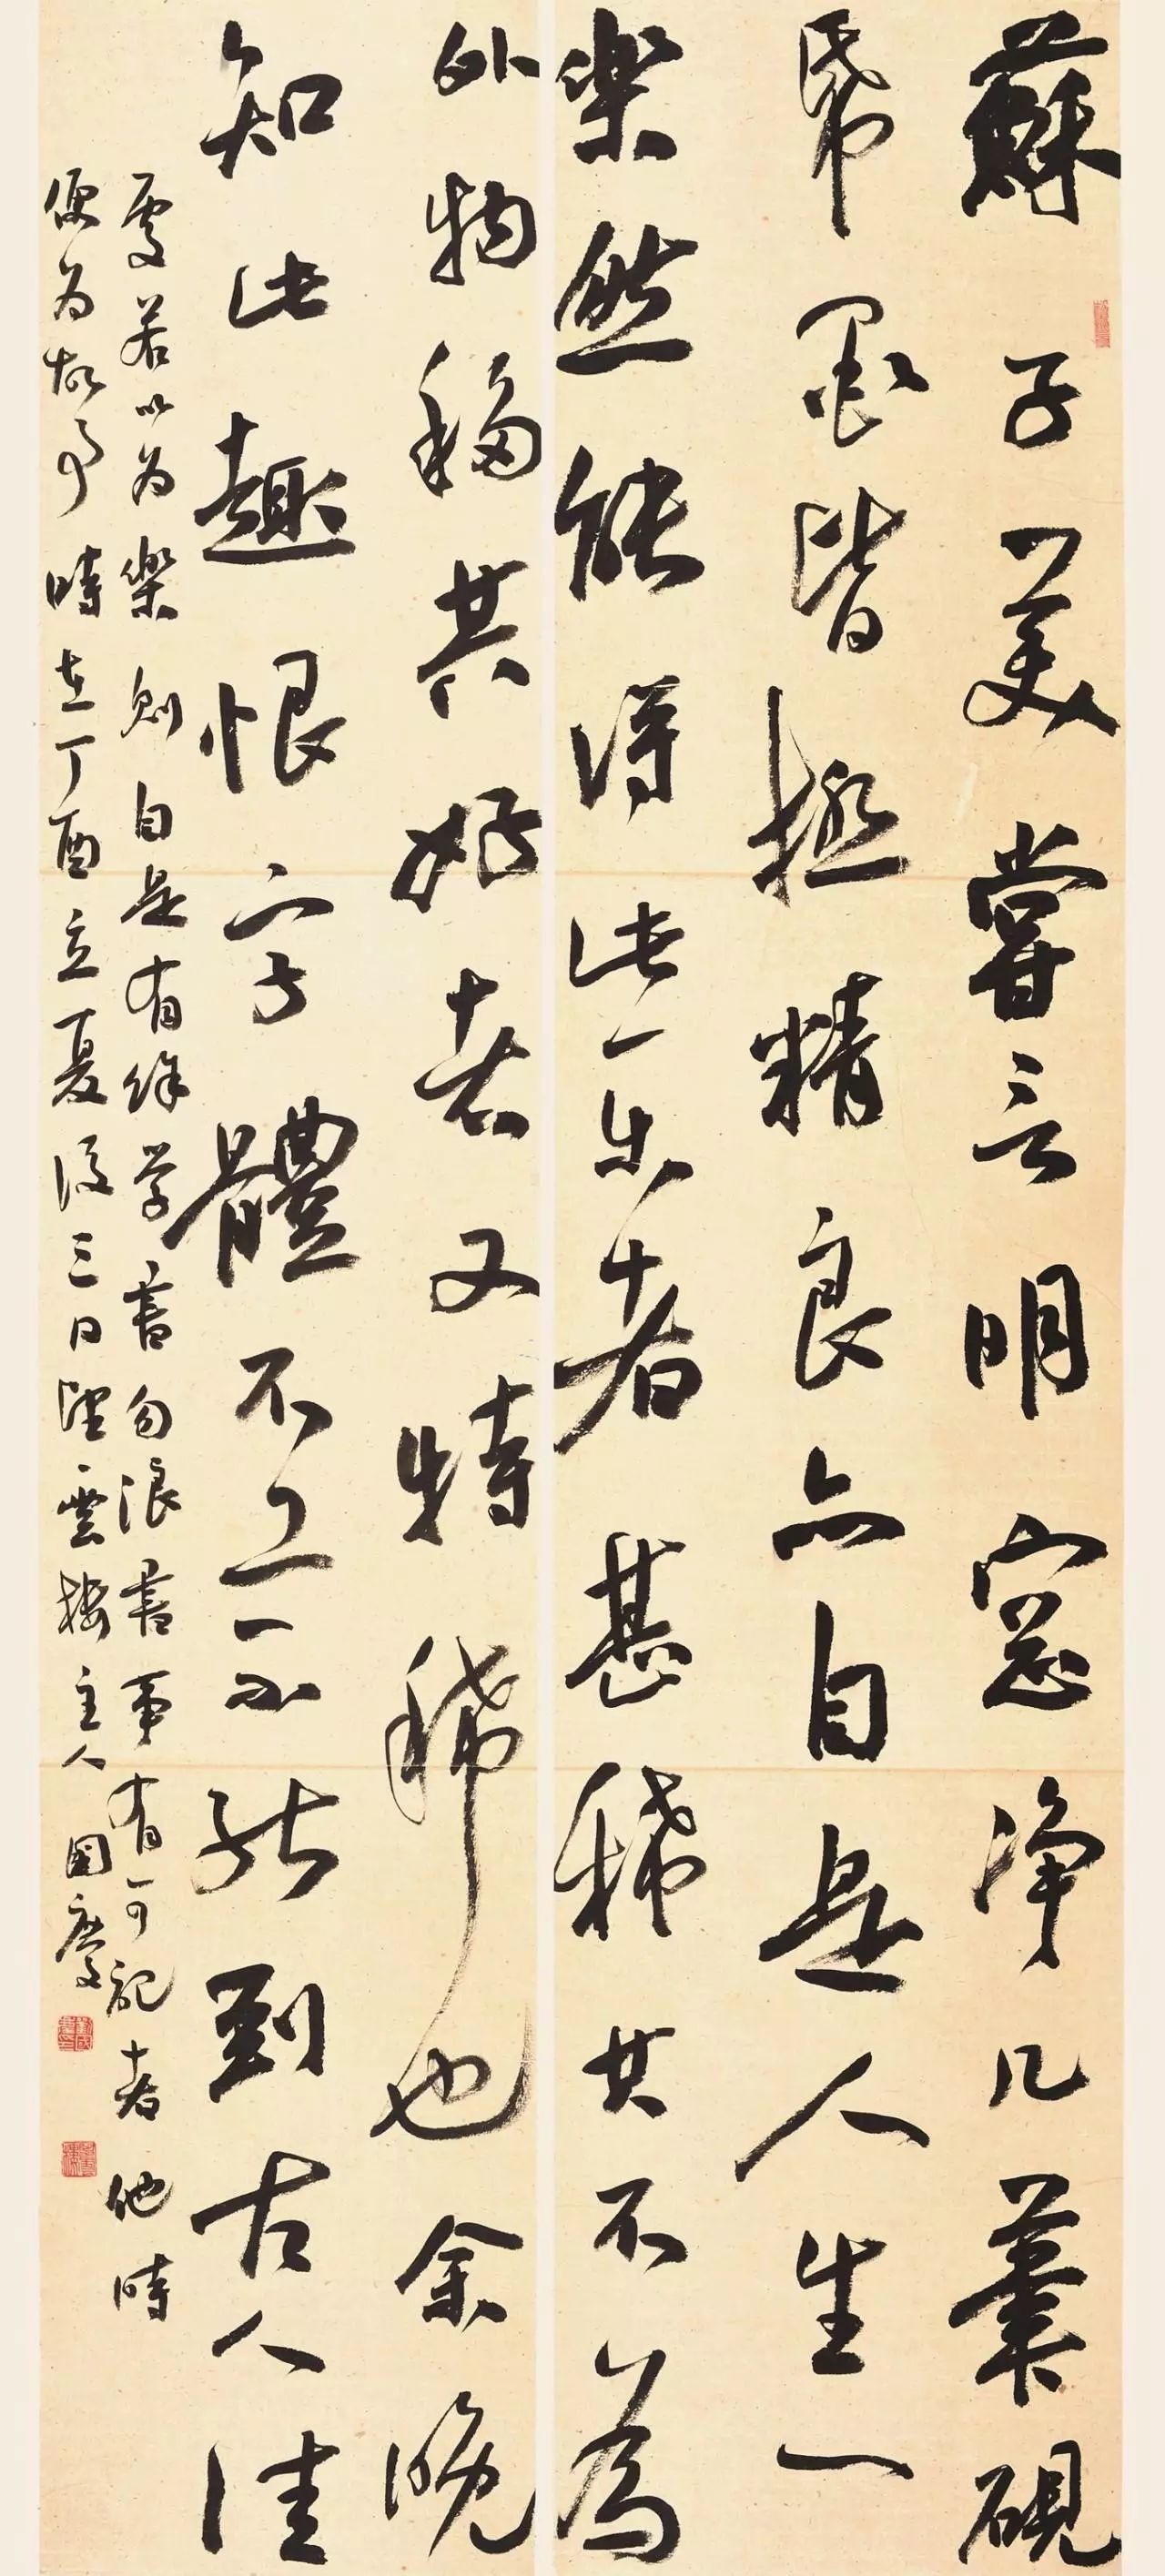 蘇子美嘗言明窓浄几筆硯
紙墨皆極精良亦自是人生一
樂然能得此一樂者甚稀其不為
外物移其好者又特稀也余晚
知此趣恨字體不工不能到古人佳
處若以為樂則自是有餘学書勿浪書事有可記者他時
便為故事時在丁酉立夏後三日望雲楼主人國慶